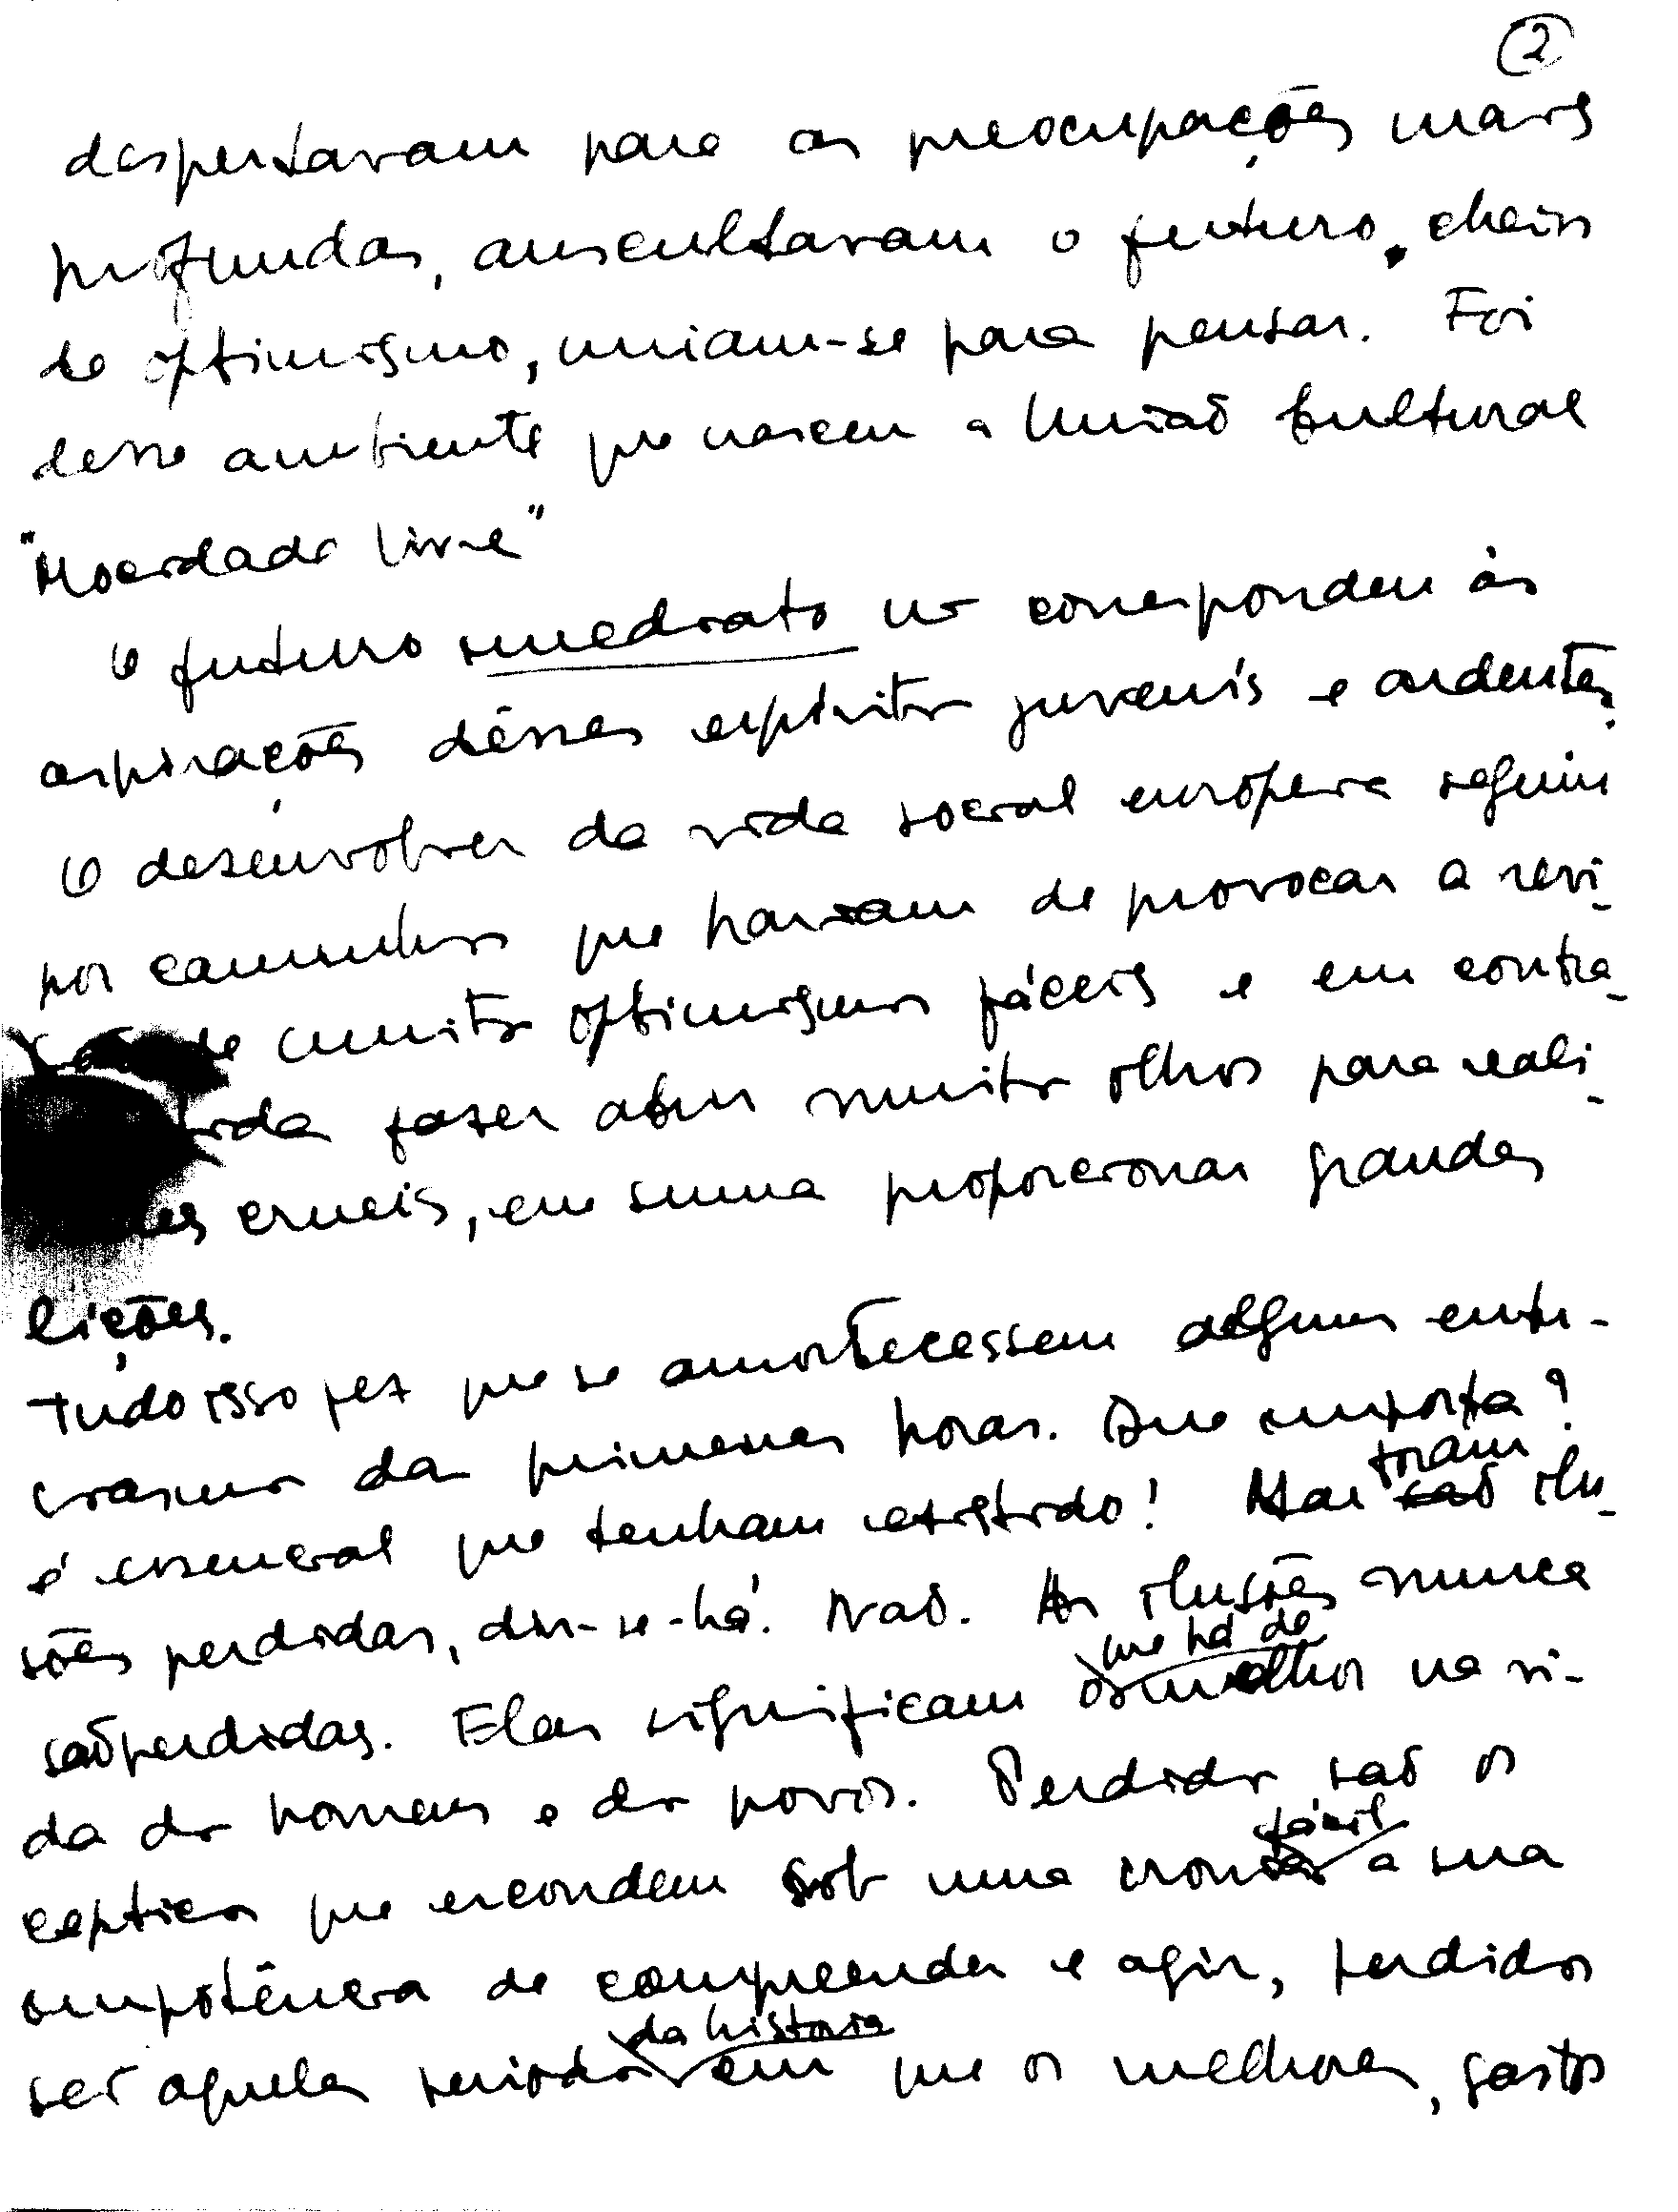 2
despertavam para as preocupações mais
profundas, auscultavam o futuro, cheios
de optimismo, uniam-se para pensar. Foi
desse ambiente que nasceu a União Cultural
"Mocidade Livre"
O futuro imediato nao correspondeu às
aspirações désses espíritos juvenis e ardentes.
O desenvolver da vida social europeia seguiu
por caminhos que haviam de provocar a revi-
são de muitos optimismos fáceis e em contra-
tida fazer abrir muitos olhos para reali-
cruéis, em suma proporcionar grandes
lições.
Tudo isso fez que se amortecessem alguns entu-
siasmos das primeiras horas. Que importa?
foram
é essencial que tenham existido! Mas são ilu-
sões perdidas, dir-se-há. Não. As ilusões nunca
que há de
são perdidas. Elas significam o melhor na vi-
da dos homens e dos povos. Perdidos são os
fácil
cepticos que escondem sob uma ironia a sua
impotência de compreender e agir, perdidos
da historia
são aqueles periodos em que os melhores, gastos